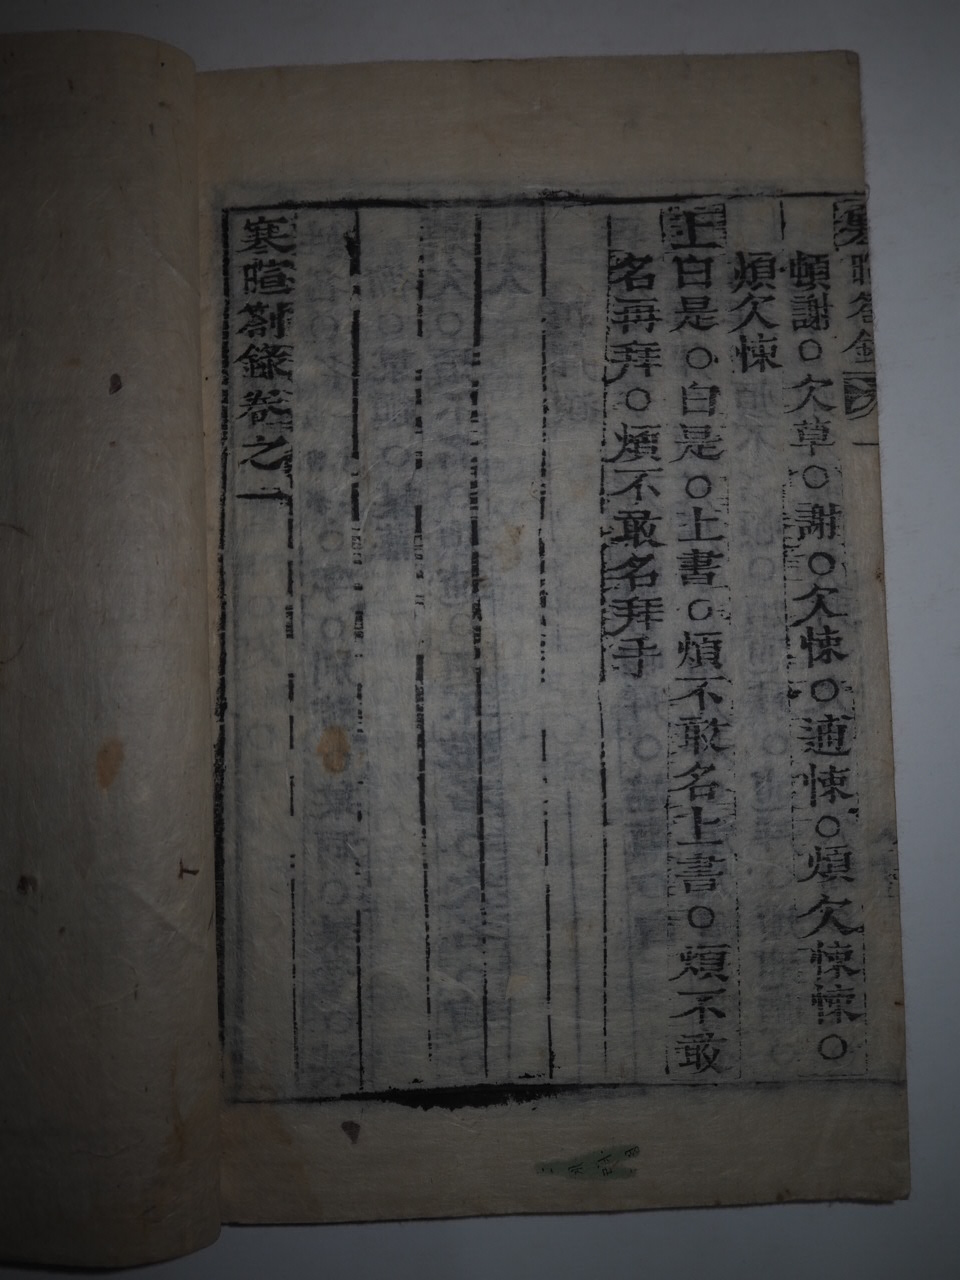 頓謝○欠草○謝○欠悚○逋悚○煩欠悚悚○
煩欠悚
上
白是○白是○上書○煩不敢名上書○煩不敢
名再拜○煩不敢名拜手
寒暄箚錄卷之一